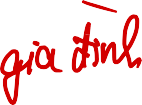 gia đình